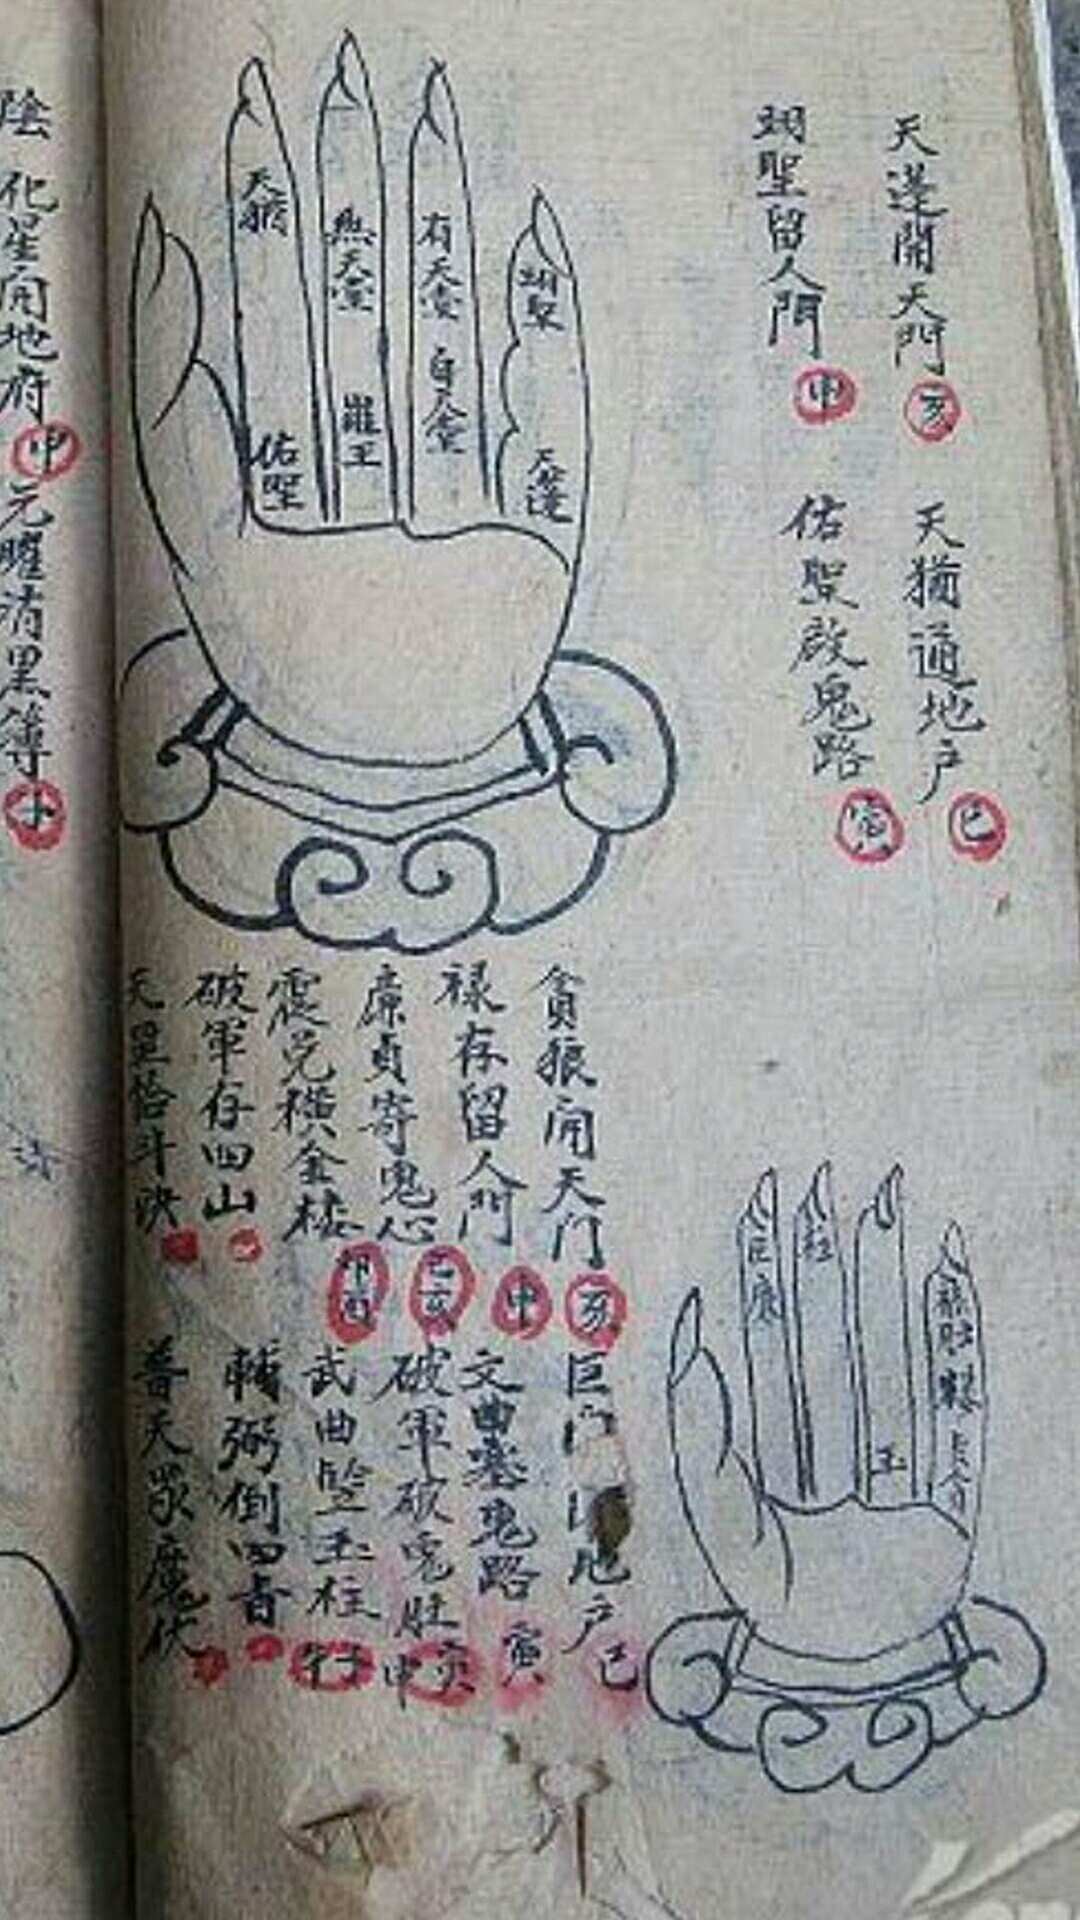 天蓬開天門亥
天猶通地户巳
翊聖留人門申
佑聖啟鬼路寅
天猶
佑聖
無天堂
羅王
有天堂
自天堂
翊聖
天蓬
貪狼開天门亥
巨门 地户巳
禄存留人门申
文曲塞鬼路寅
廉貞寄鬼心巳亥
破軍破鬼肚寅申
震兑横金楼卯酉
武曲竖玉柱子午
破軍存四山
輔弼倒四音
天罡恰斗决
普天眾魔伏
巨
廉
柱
玉
禄肚
楼
陰
化星開地府申
元曜清黑簿